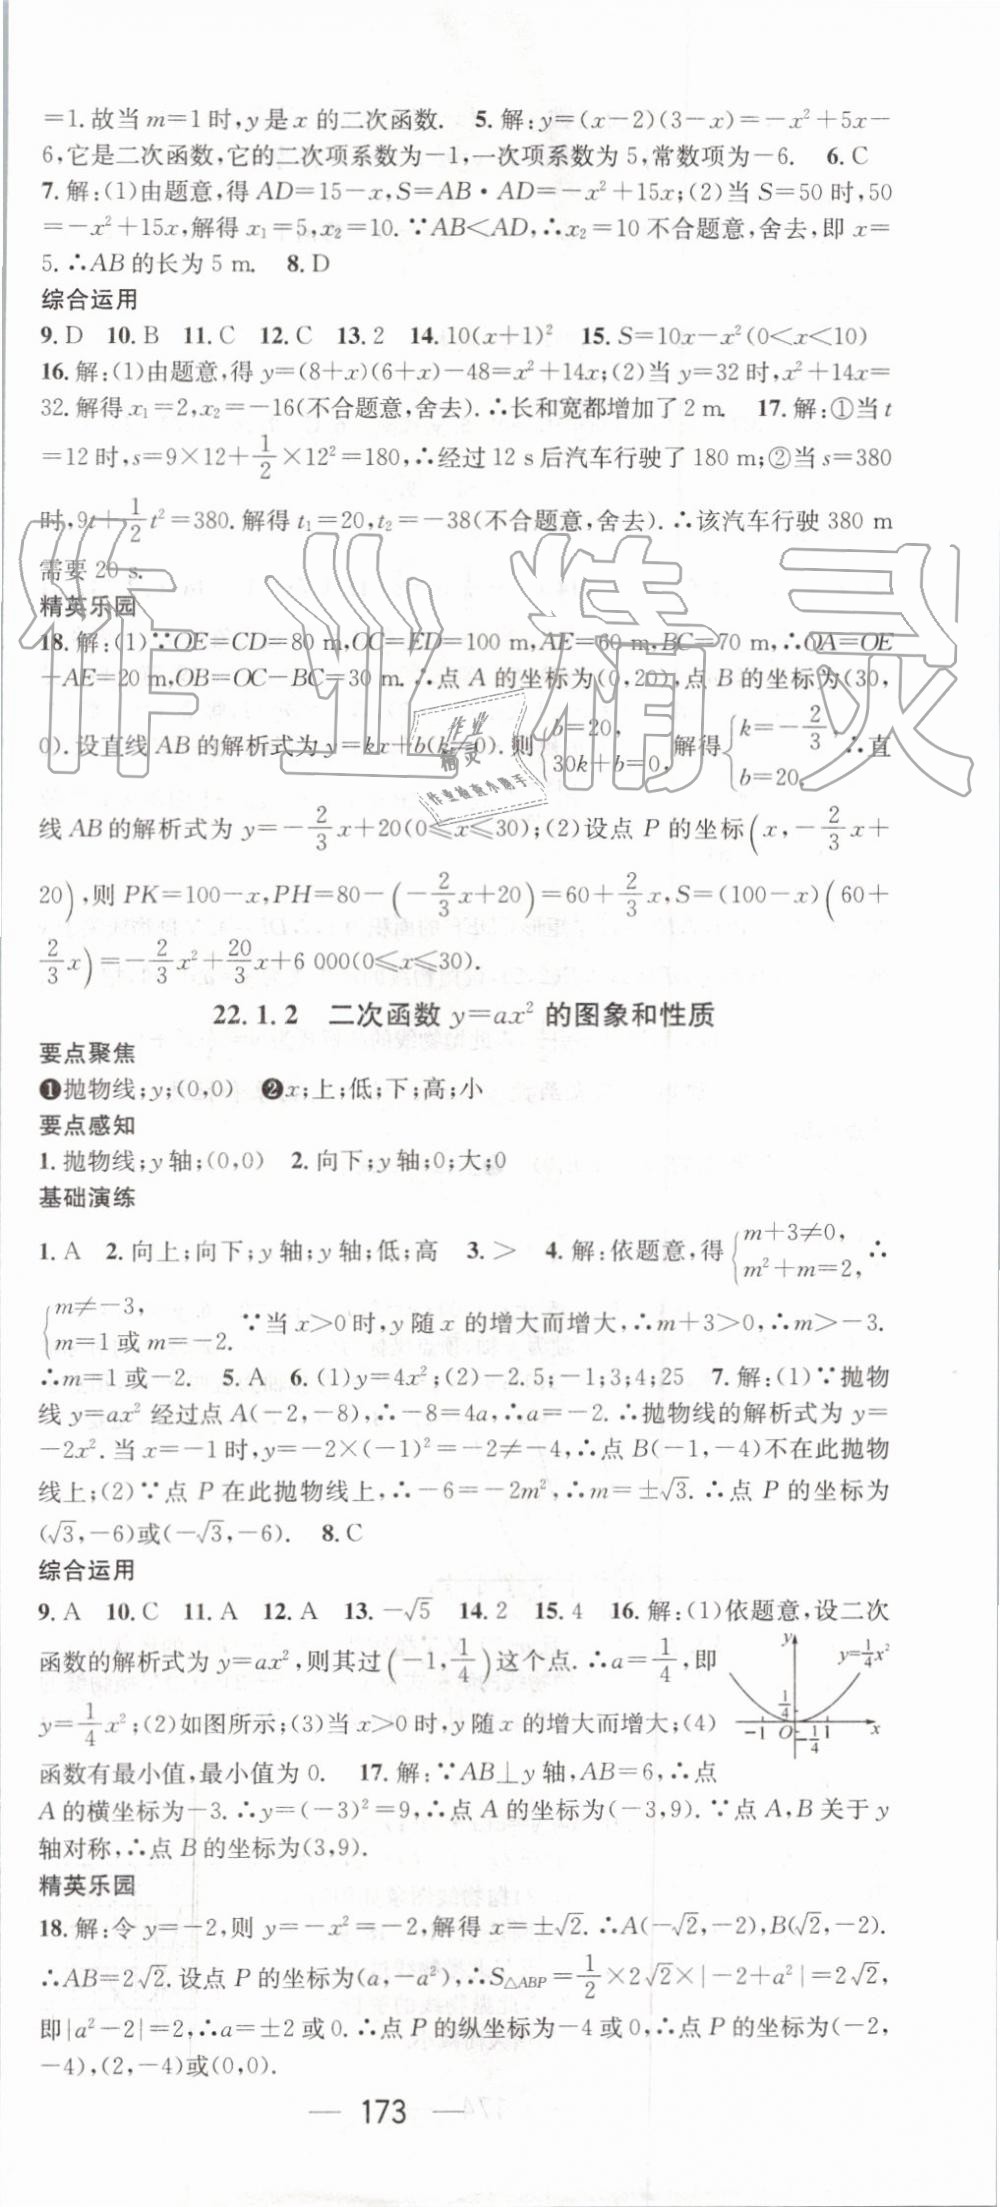 =1.故当m=1时,y是x的二次函数. 5.解:y=(x-2)(3-x)=-x²+5x-
6,它是二次函数,它的二次项系数为-1,一次项系数为5,常数项为-6. 6.C
7.解:(1)由题意,得AD=15-x,S=AB·AD=-x²+15x;(2)当S=50时,50
=-x²+15x,解得x₁=5,x₂=10.∵AB<AD,∴x₂=10不合题意,舍去,即x=
5.∴AB的长为5 m. 8.D
综合运用
9.D 10.B 11.C 12.C 13.2 14.10(x+1)² 15.S=10x-x²(0<x<10)
16.解:(1)由题意,得y=(8+x)(6+x)-48=x²+14x;(2)当y=32时,x²+14x=
32.解得x₁=2,x₂=-16(不合题意,舍去).∴长和宽都增加了2 m. 17.解:①当t
=12时,s=9×12+1/2×12²=180,∴经过12 s后汽车行驶了180 m;②当s=380
时,9t+1/2t²=380.解得t₁=20,t₂=-38(不合题意,舍去).∴该汽车行驶380 m
需要20 s.
精英乐园
18.解:(1)∵OE=CD=80 m,OC=ED=100 m,AE=60 m,BC=70 m,∴OA=OE
-AE=20 m,OB=OC-BC=30 m.∴点A的坐标为(0,20),点B的坐标为(30,
0).设直线AB的解析式为y=kx+b(k≠0).则{b=20, 30k+b=0,解得{k=-2/3, b=20.∴直
线AB的解析式为y=-2/3x+20(0≤x≤30);(2)设点P的坐标(x,-2/3x+
20),则PK=100-x,PH=80-(-2/3x+20)=60+2/3x,S=(100-x)(60+
2/3x)=-2/3x²+20/3x+6 000(0≤x≤30).
22.1.2 二次函数y=ax²的图象和性质
要点聚焦
❶抛物线;y;(0,0) ❷x;上;低;下;高;小
要点感知
1.抛物线;y轴;(0,0) 2.向下;y轴;0;大;0
基础演练
1.A 2.向上;向下;y轴;y轴;低;高 3.> 4.解:依题意,得{m+3≠0, m²+m=2,∴
{m≠-3, m=1或m=-2.∵当x>0时,y随x的增大而增大,∴m+3>0,∴m>-3.
∴m=1或-2. 5.A 6.(1)y=4x²;(2)-2.5;-1;3;4;25 7.解:(1)∵抛物
线y=ax²经过点A(-2,-8),∴-8=4a,∴a=-2.∴抛物线的解析式为y=
-2x².当x=-1时,y=-2×(-1)²=-2≠-4,∴点B(-1,-4)不在此抛物
线上;(2)∵点P在此抛物线上,∴-6=-2m²,∴m=±√3.∴点P的坐标为
(√3,-6)或(-√3,-6). 8.C
综合运用
9.A 10.C 11.A 12.A 13.-√5 14.2 15.4 16.解:(1)依题意,设二次
函数的解析式为y=ax²,则其过(-1,1/4)这个点.∴a=1/4,即
y=1/4x²;(2)如图所示;(3)当x>0时,y随x的增大而增大;(4)
y y=1/4x²
1/4
-1 O 1 x
-1/4
函数有最小值,最小值为0. 17.解:∵AB⊥y轴,AB=6,∴点
A的横坐标为-3.∴y=(-3)²=9,∴点A的坐标为(-3,9).∵点A,B关于y
轴对称,∴点B的坐标为(3,9).
精英乐园
18.解:令y=-2,则y=-x²=-2,解得x=±√2.∴A(-√2,-2),B(√2,-2).
∴AB=2√2.设点P的坐标为(a,-a²),∴S△ABP=1/2×2√2×|-2+a²|=2√2,
即|a²-2|=2,∴a=±2或0.∴点P的纵坐标为-4或0,∴点P的坐标为(-2,
-4),(2,-4)或(0,0).
— 173 —
作业精灵
作业
精灵
作业检查小助手